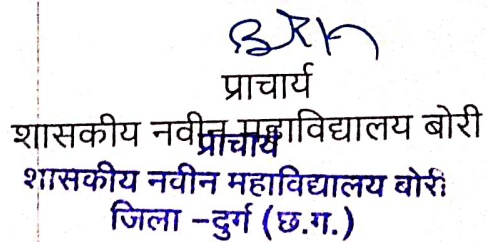 प्राचार्य
शासकीय नवीन महाविद्यालय बोरी
प्राचार्य
शासकीय नवीन महाविद्यालय बोरी
जिला –दुर्ग (छ.ग.)